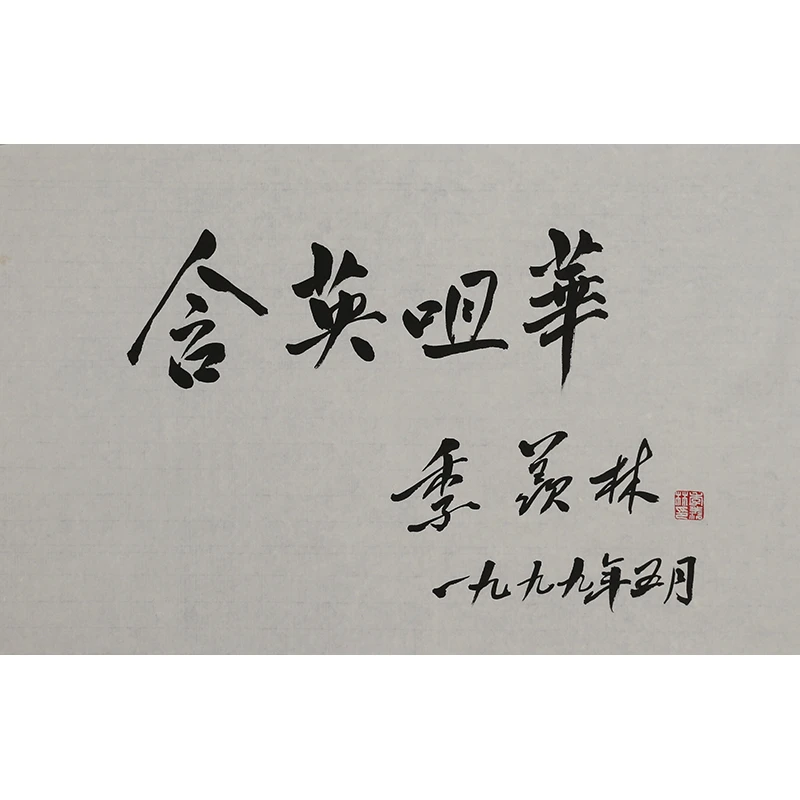 含英咀華
季羡林
一九九九年五月